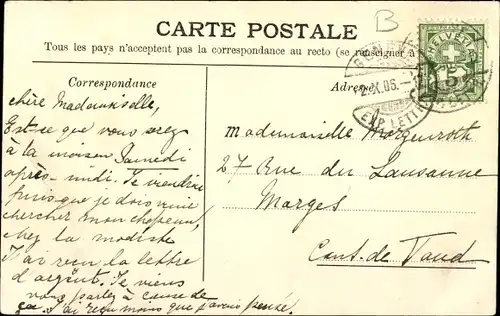 CARTE POSTALE
B
Tous les pays n'acceptent pas la correspondance au recto (se renseigner à
Correspondance
Adresse
HELVETIA
5
2.X.06.
EXP. LETT
chère Mademoiselle,
Est-ce que vous serez
à la maison Samedi
après-midi. Je viendrai
puis que je dois venir
chercher mon chapeau,
chez la modiste
J'ai reçu la lettre
d'argent. Je viens
vous parler à cause de
ça. J'ai reçu moins que j'avais pensé.
Mademoiselle Morgenroth
27 Rue du Lausanne
Morges
Cant. de Vaud